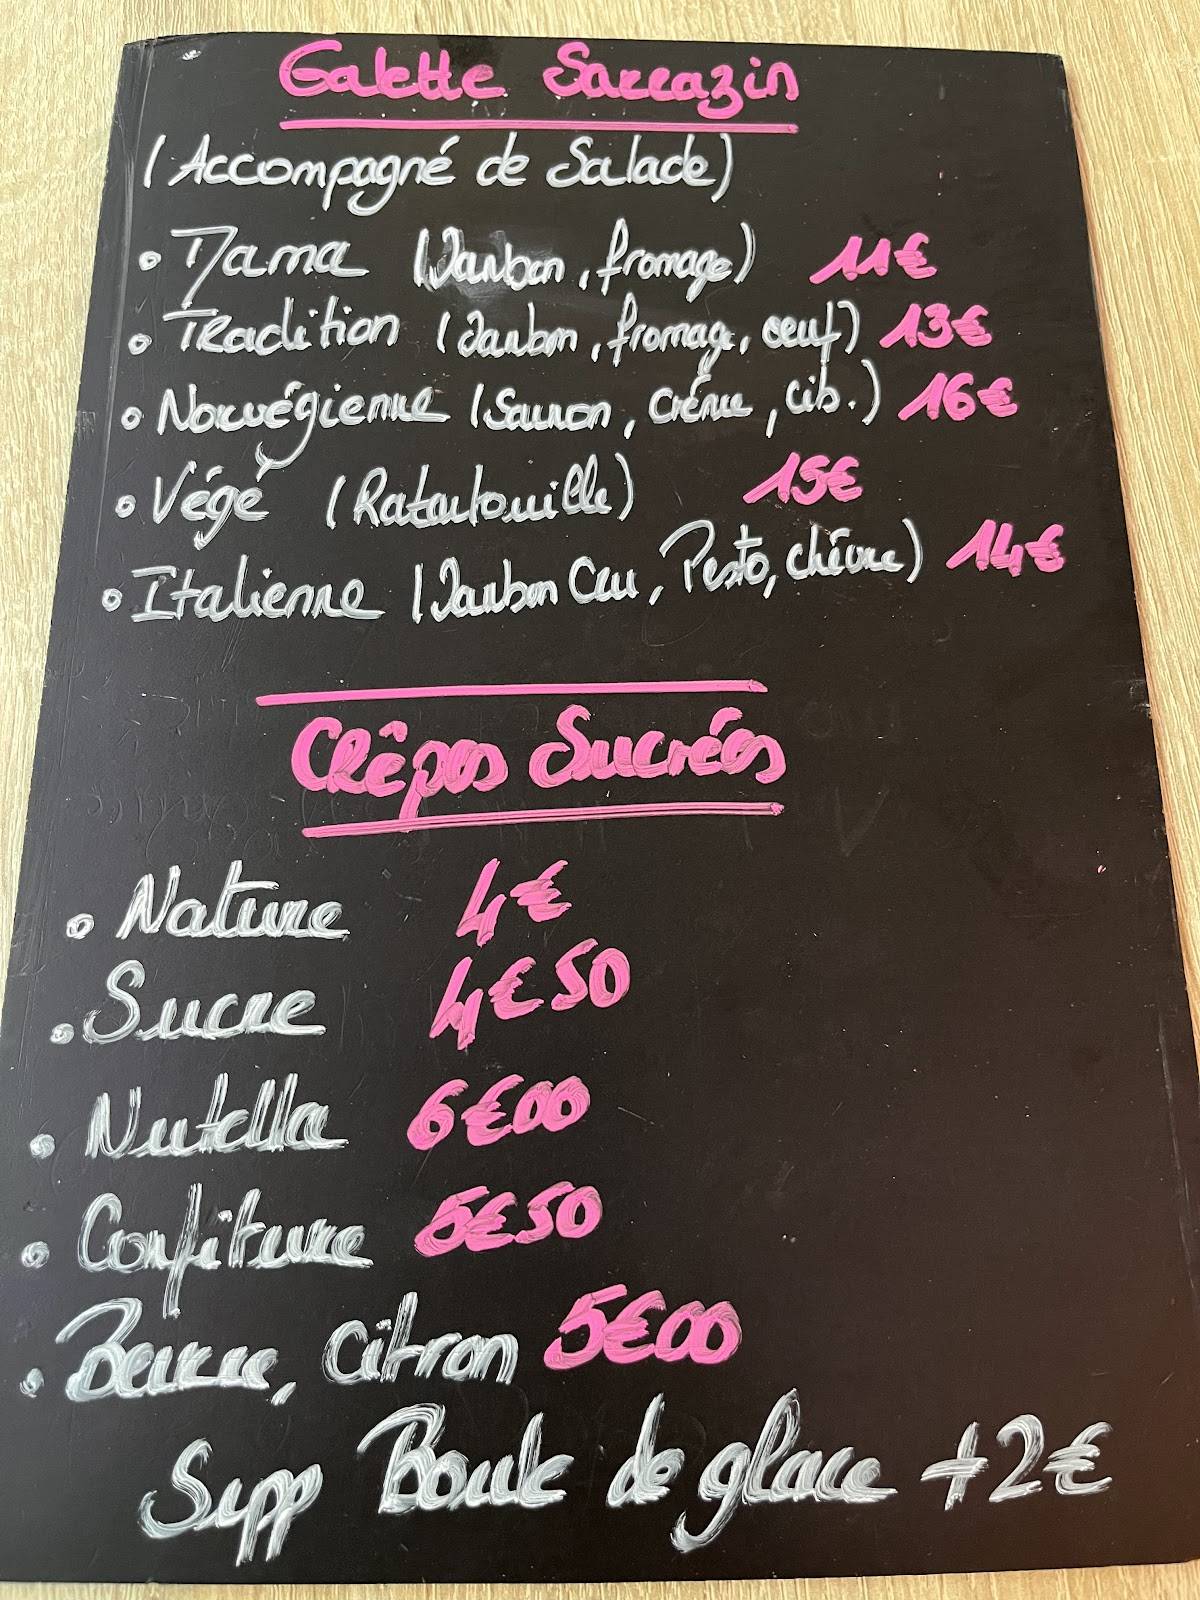 Galette Sarrazin
(Accompagné de Salade)
• Mama (Jambon, fromage) 11€
• Tradition (Jambon, fromage, oeuf) 13€
• Norvégienne (Saumon, crème, cib.) 16€
• Végé (Ratatouille) 15€
• Italienne (Jambon Cru, Pesto, chèvre) 14€
Crêpes Sucrées
• Nature 4€
• Sucre 4€50
• Nutella 6€00
• Confiture 5€50
• Beurre, citron 5€00
Supp Boule de glace +2€